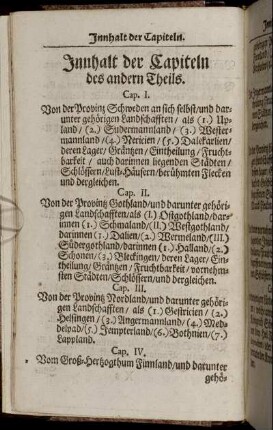 Innhalt der Capiteln.
Innhalt der Capiteln
des andern Theils.
Cap. I.
Von der Provintz Schweden an sich selbst/und dar-
unter gehörigen Landschafften/ als (1.) Up-
land/ (2.) Sudermannland/ (3.) Wester-
mannland/(4.) Nericien/ (5.) Dalekarlien/
deren Lager/ Gräntzen/ Eintheilung/ Frucht-
barkeit/ auch darinnen liegenden Städten/
Schlössern/Lust-Häusern/berühmten Flecken
und dergleichen.
Cap. II.
Von der Provintz Gothland/und darunter gehöri-
gen Landschafften/als (I.) Ostgothland/dar-
innen (1.) Schmaland/(II.) Westgothland/
darinnen (1.) Dalien/(2.) Wermeland/(III.)
Südergothland/darinnen (1.) Halland/(2.)
Schonen/(3.) Bleckingen/ deren Lager/ Ein-
theilung/ Gräntzen/ Fruchtbarkeit/ vornehm-
sten Städten/Schlössern/und dergleichen.
Cap. III.
Von der Provintz Nordland/und darunter gehöri-
gen Landschafften/ als (1.) Gestricien/ (2.)
Helsingen/ (3.) Angermannland/ (4.) Med-
delpad/(5.) Jempterland/(6.) Bothnien/(7.)
Lappland.
Cap. IV.
Vom Groß-Hertzogthum Finnland/und darunter
gehö-